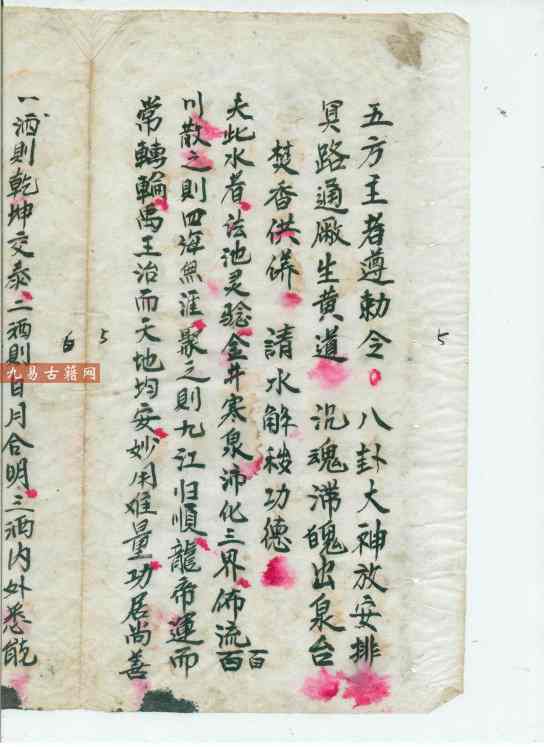 五方王者遵勅令 八卦大神放安排
冥路通厰生黄道 沉魂滞魄出泉台
焚香供養 請水解穢功德
夫此水者法池灵驗金井寒泉沛化三界佈流百
百
川散之則四海無涯聚之則九江归順龍帝運而
常轉輪禹王治而天地均安妙用难量功居尚善
一洒則乾坤交泰二洒則日月合明三洒内外悉能
5
5
6
九易古籍网